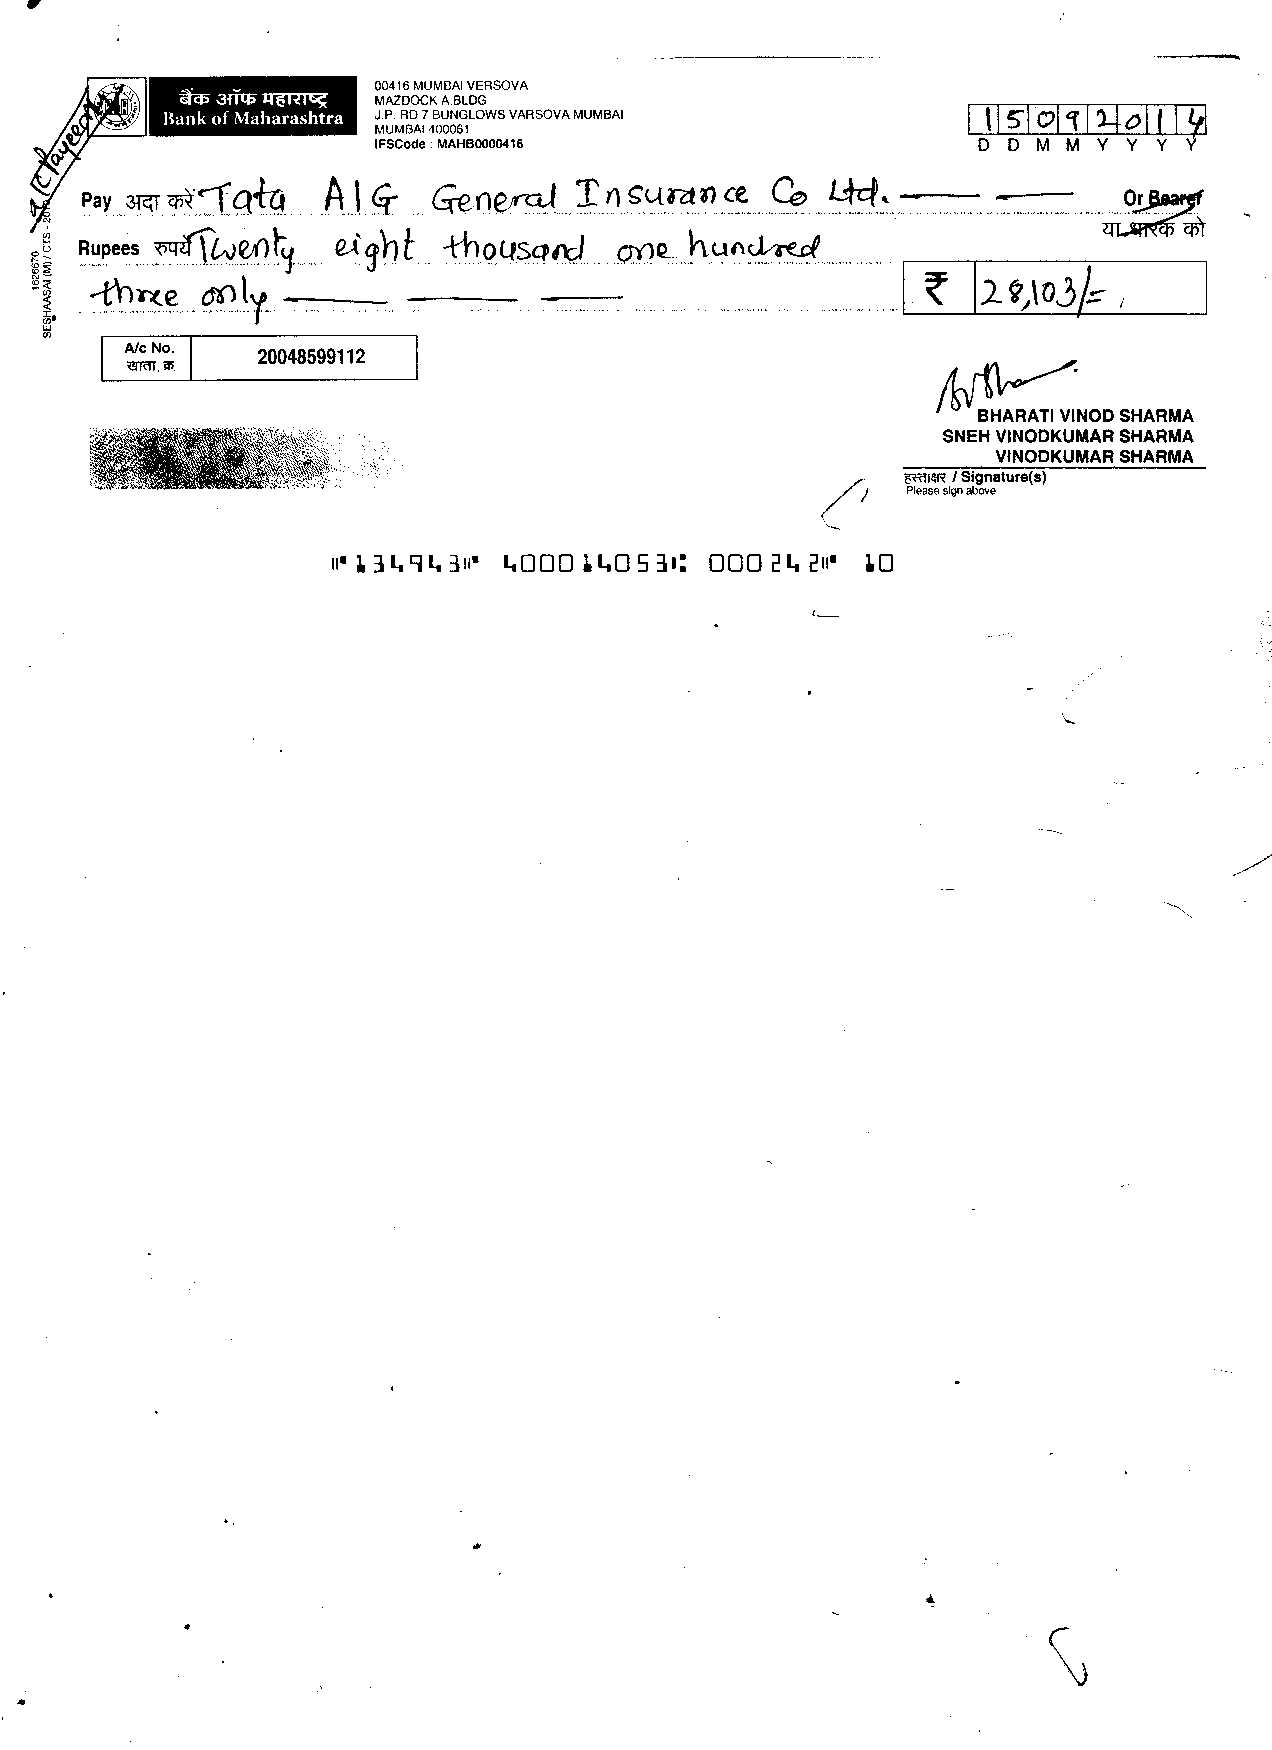 A/C Payee only
बैंक ऑफ महाराष्ट्र
Bank of Maharashtra
00416 MUMBAI VERSOVA
MAZDOCK A.BLDG
J.P. RD 7 BUNGLOWS VARSOVA MUMBAI
MUMBAI 400061
IFSCode : MAHB0000416
15092014
D D M M Y Y Y Y
Pay अदा करें Tata AIG General Insurance Co Ltd. Or Bearer
या धारक को
Rupees रुपये Twenty eight thousand one hundred
three only
₹ 28,103/=
SESHAASAI (M) / CTS - 2010
1626670
A/c No. 20048599112
खाता. क्र.
BHARATI VINOD SHARMA
SNEH VINODKUMAR SHARMA
VINODKUMAR SHARMA
हस्ताक्षर / Signature(s)
Please sign above
⑈134943⑈ 400014053⑆ 000242⑈ 10